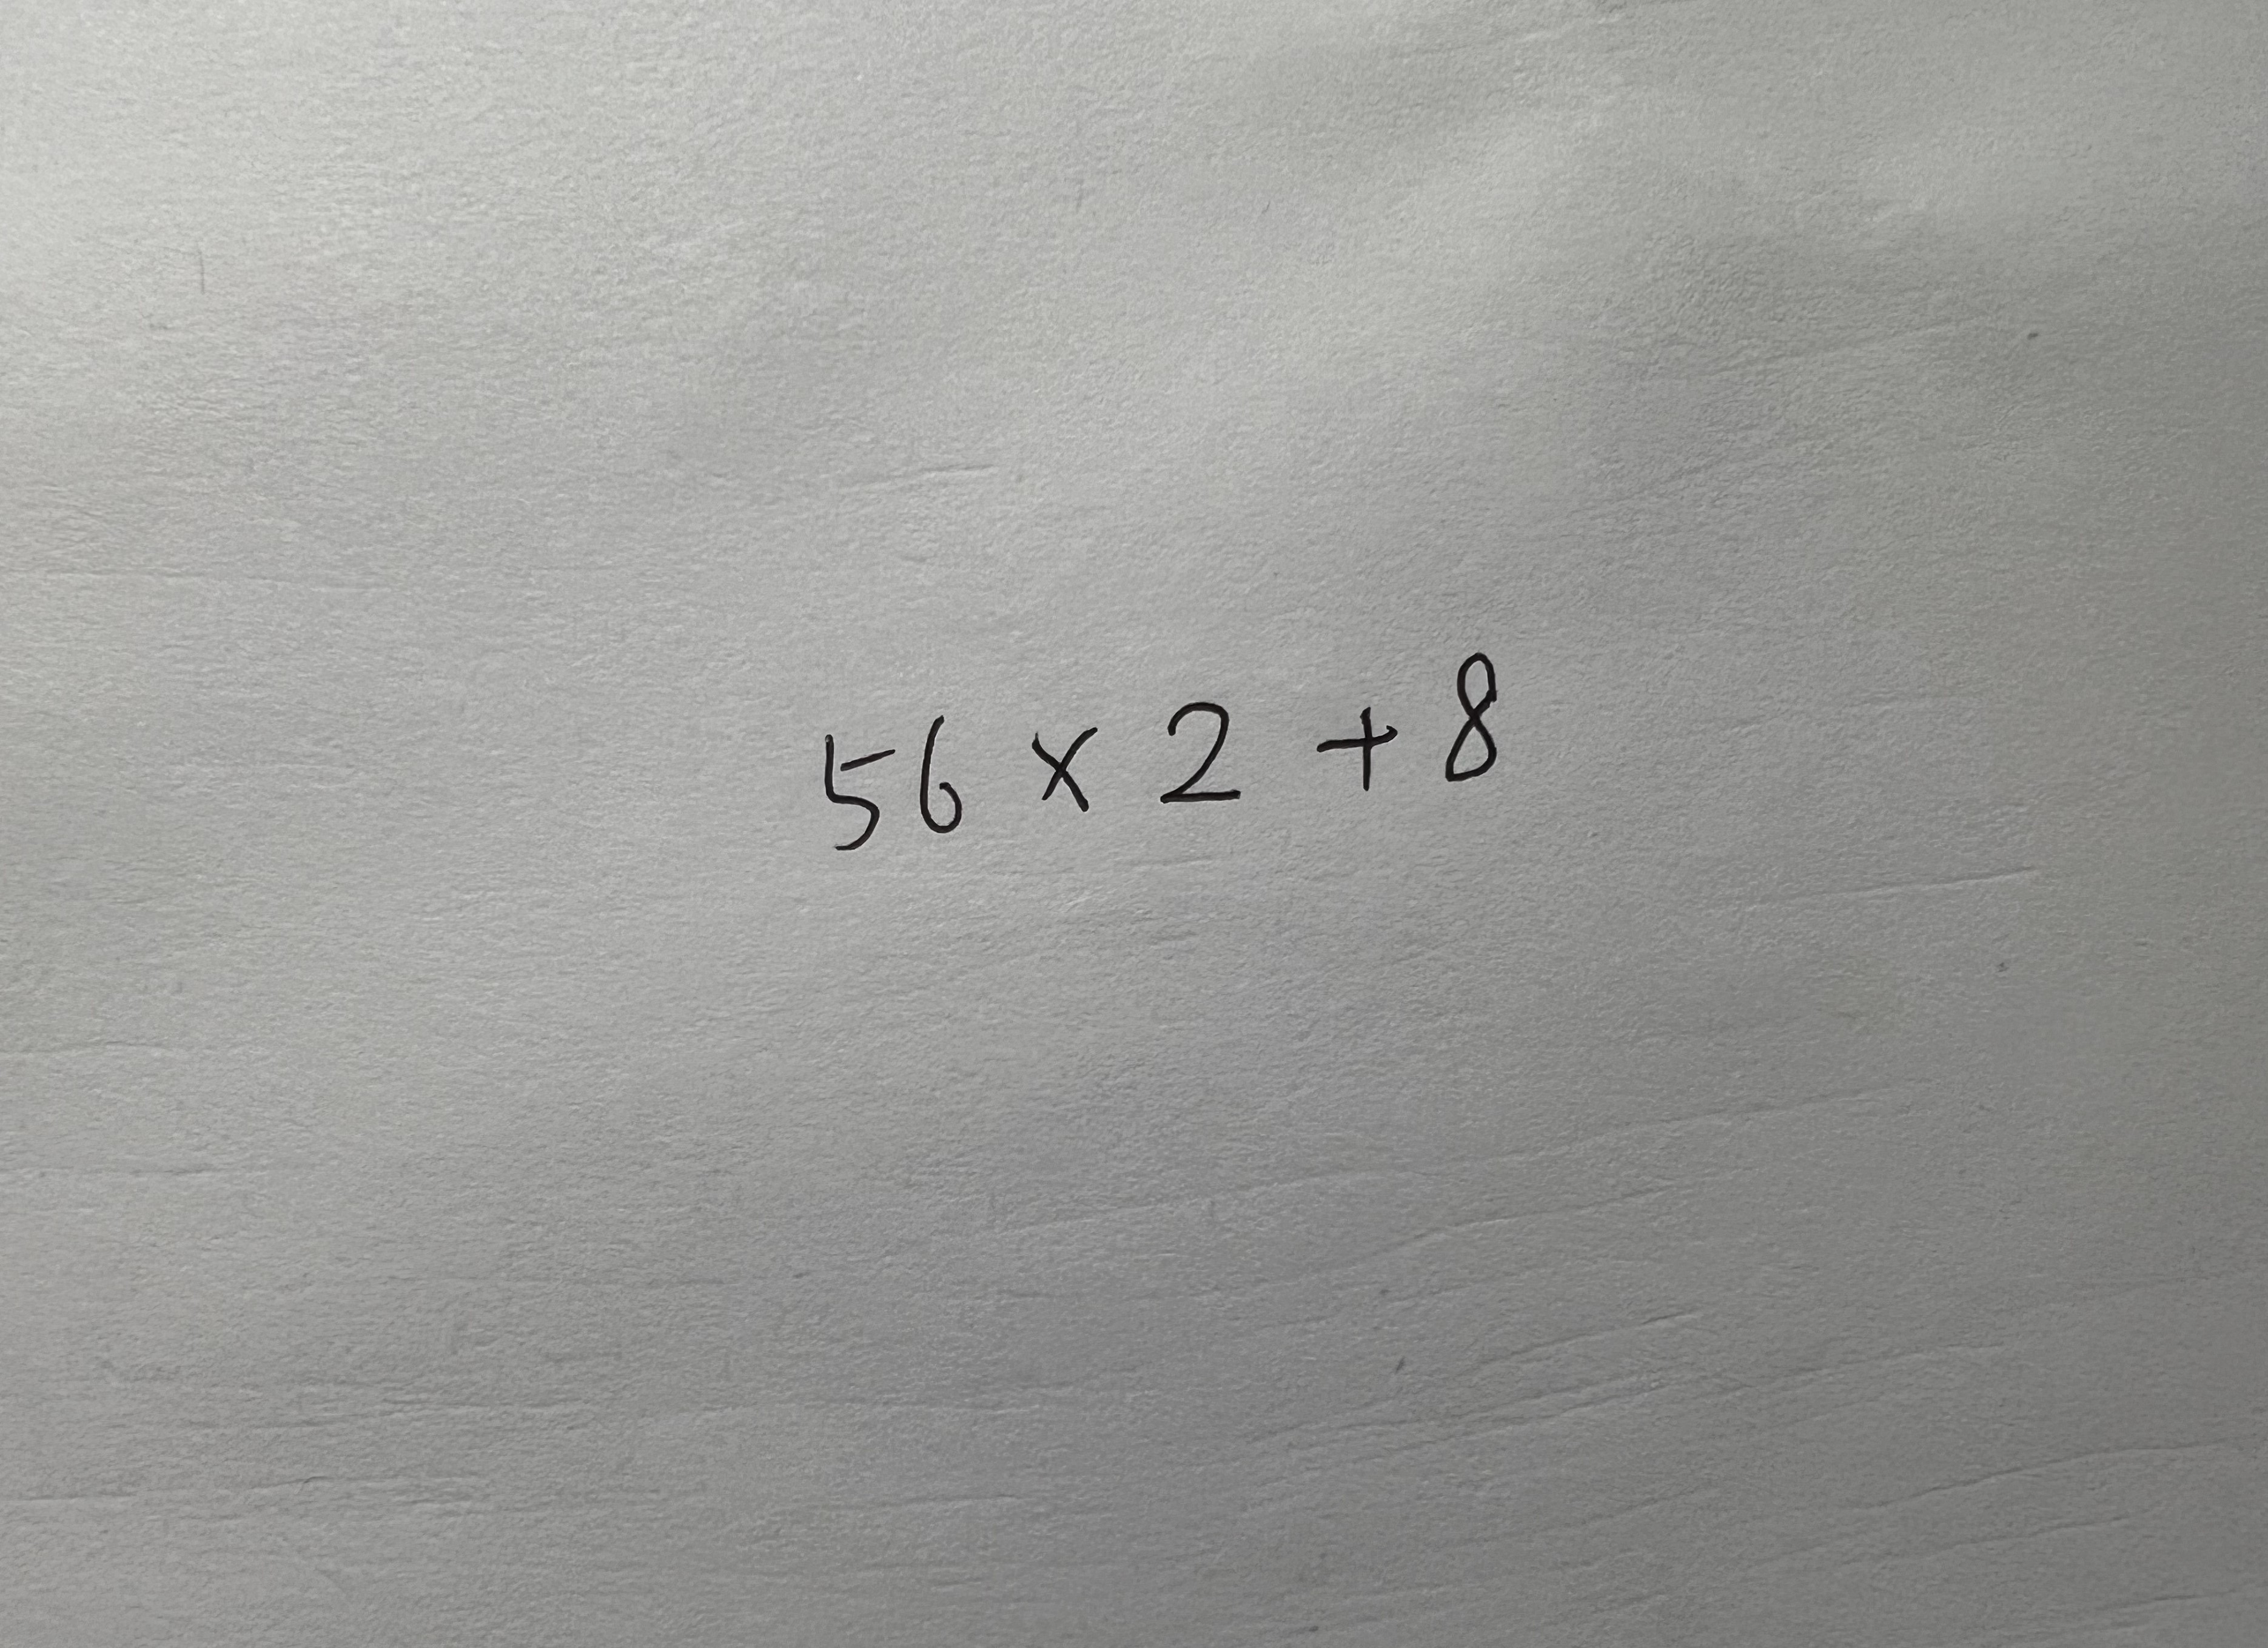 56 × 2 + 8